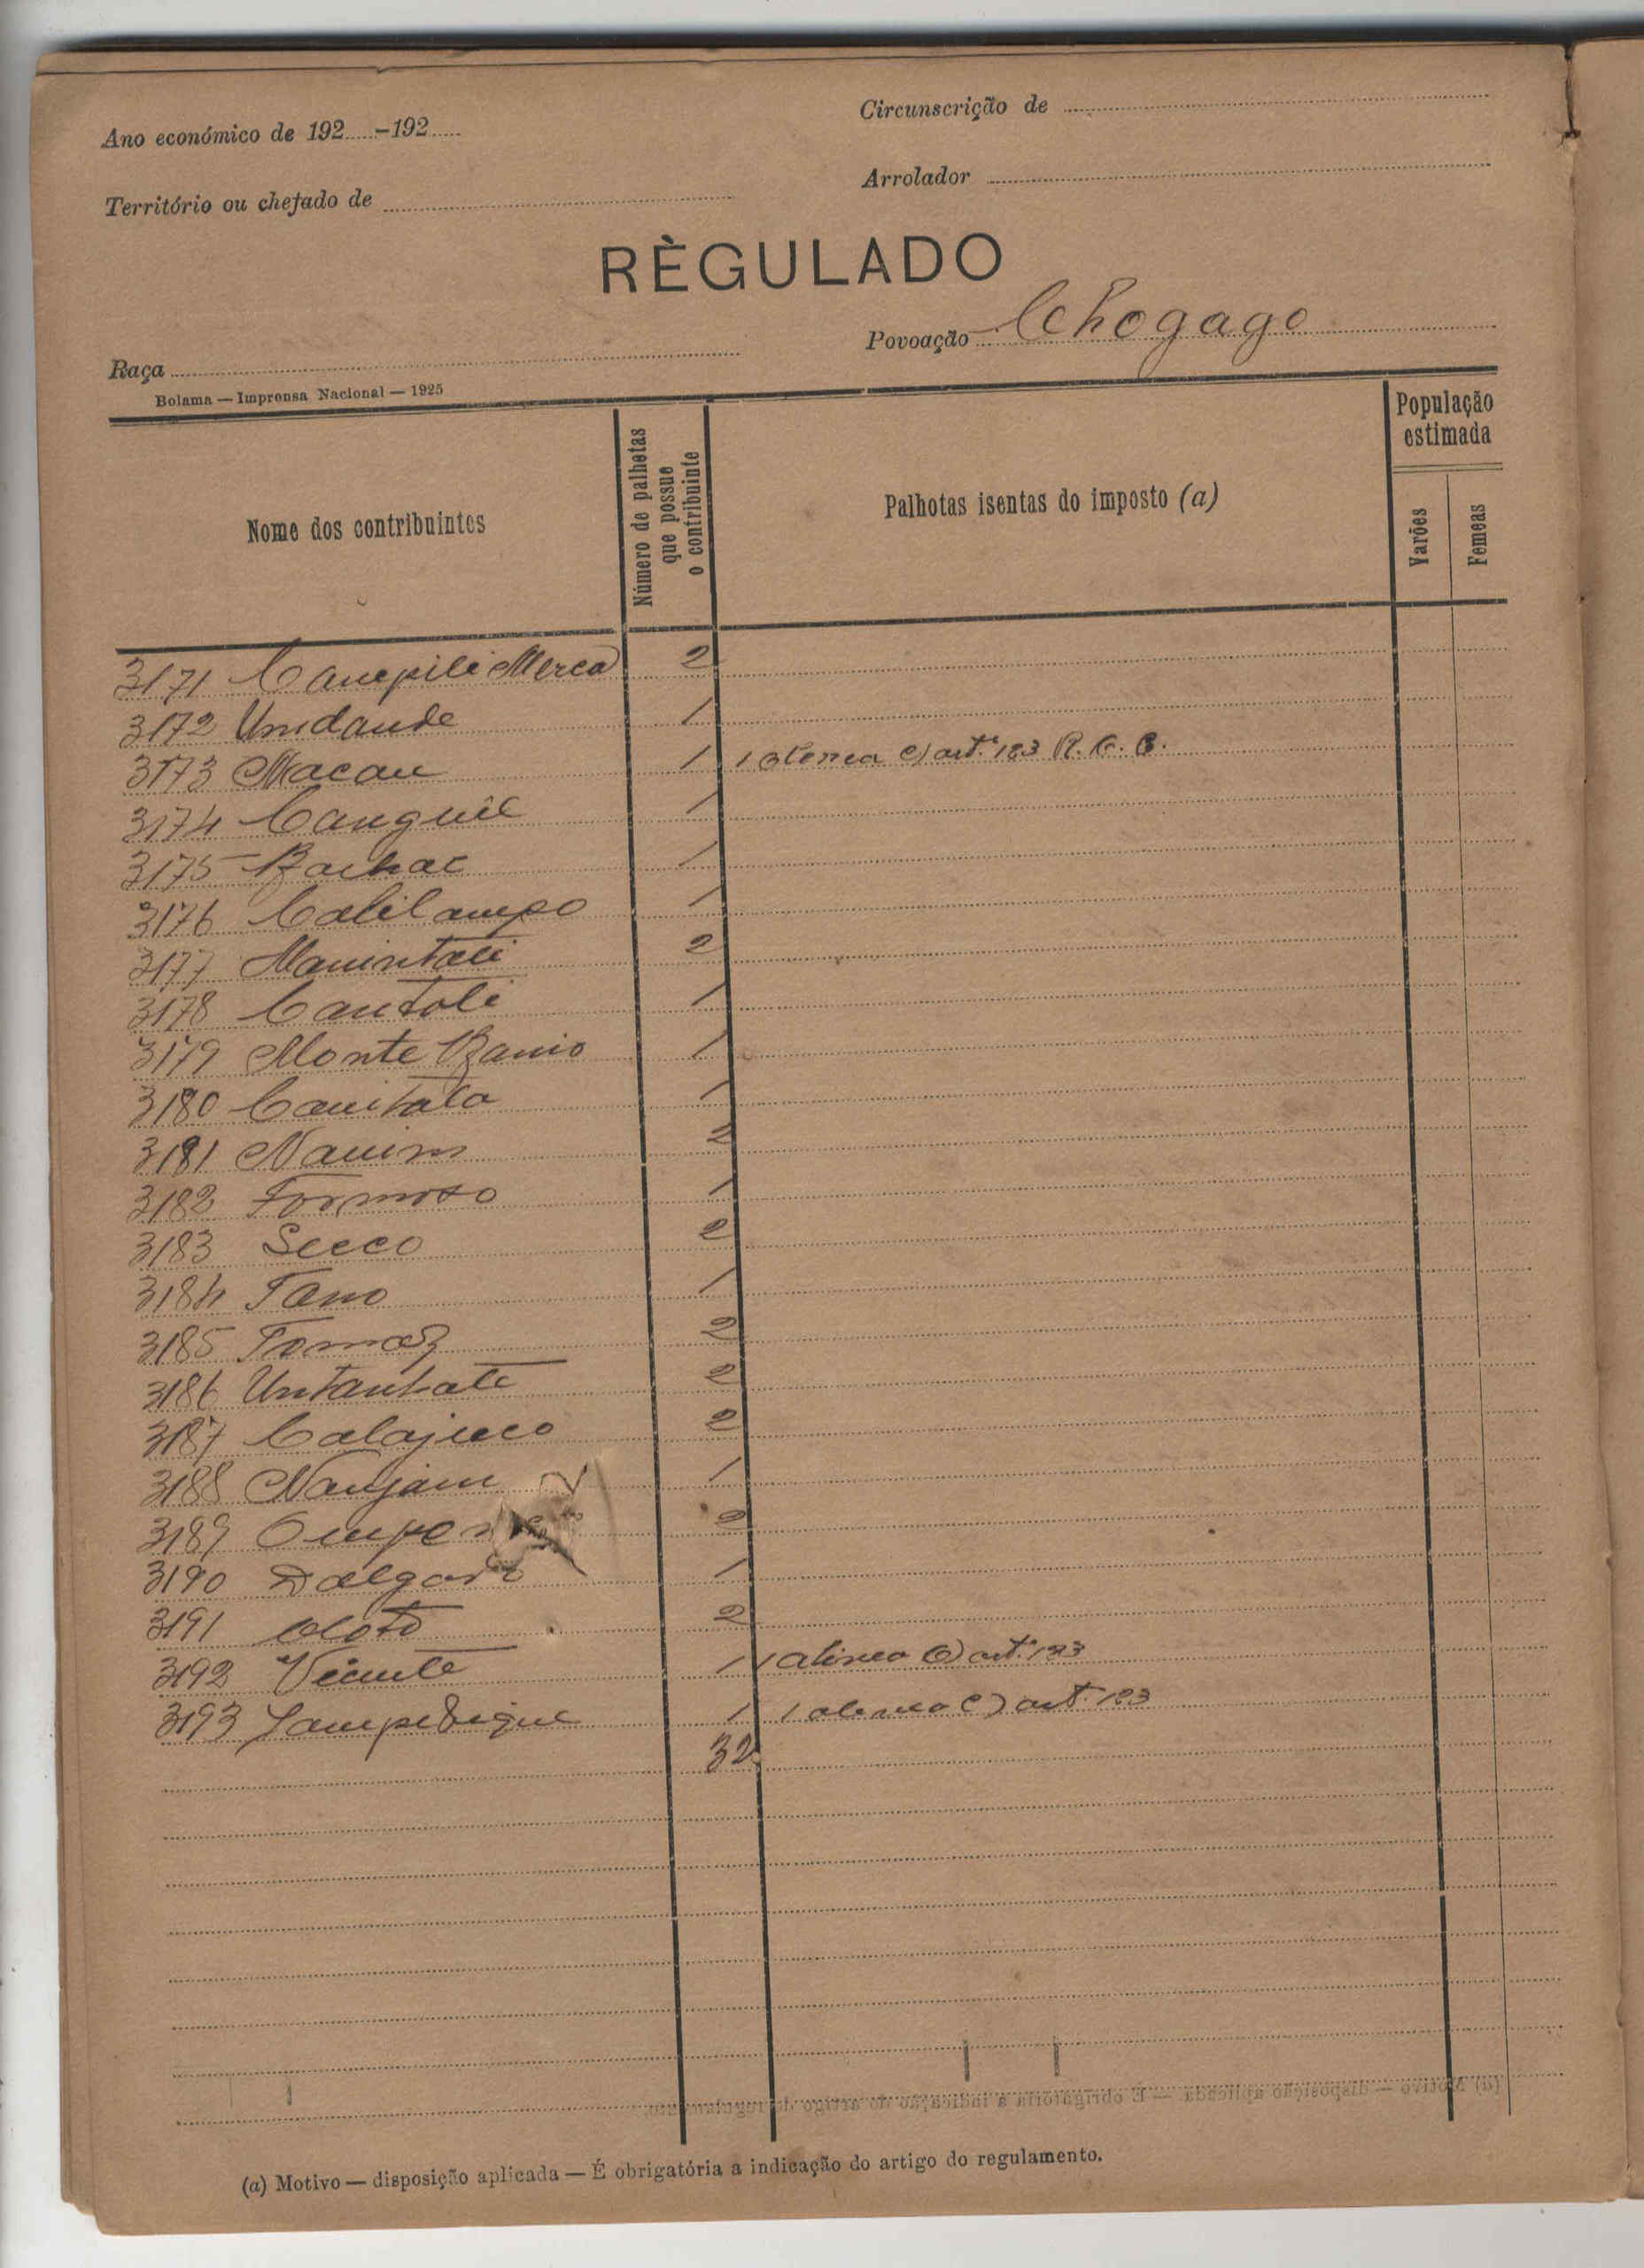 Ano económico de 192.....-192.....
Circunscrição de
Território ou chefado de
Arrolador
RÈGULADO
Raça
Povoação Chogago
Bolama — Imprensa Nacional — 1925
Nome dos contribuintes
Número de palhotas que possue o contribuinte
Palhotas isentas do imposto (a)
População estimada
Varões
Femeas
3171 Campili Merca 2
3172 Undande 1
3173 Macau 1 1 alinea c) art.º 123 R. C. C.
3174 Canguié 1
3175 Bachac 1
3176 Calilampo 1
3177 Manintali 2
3178 Cantoli 1
3179 Monte Banio 1
3180 Canitala 1
3181 Nanim 2
3182 Formoso 1
3183 Seeco 2
3184 Tano 1
3185 Tomaz 2
3186 Untanhate 2
3187 Calajuco 2
3188 Nanjam 1
3189 2
3190 Dalgado 1
3191 Cloto 2
3192 Vicente 1 1 alinea c) art.º 123
3193 Sampedique 1 1 alinea c) art.º 123
32
(a) Motivo — disposição aplicada — É obrigatória a indicação do artigo do regulamento.